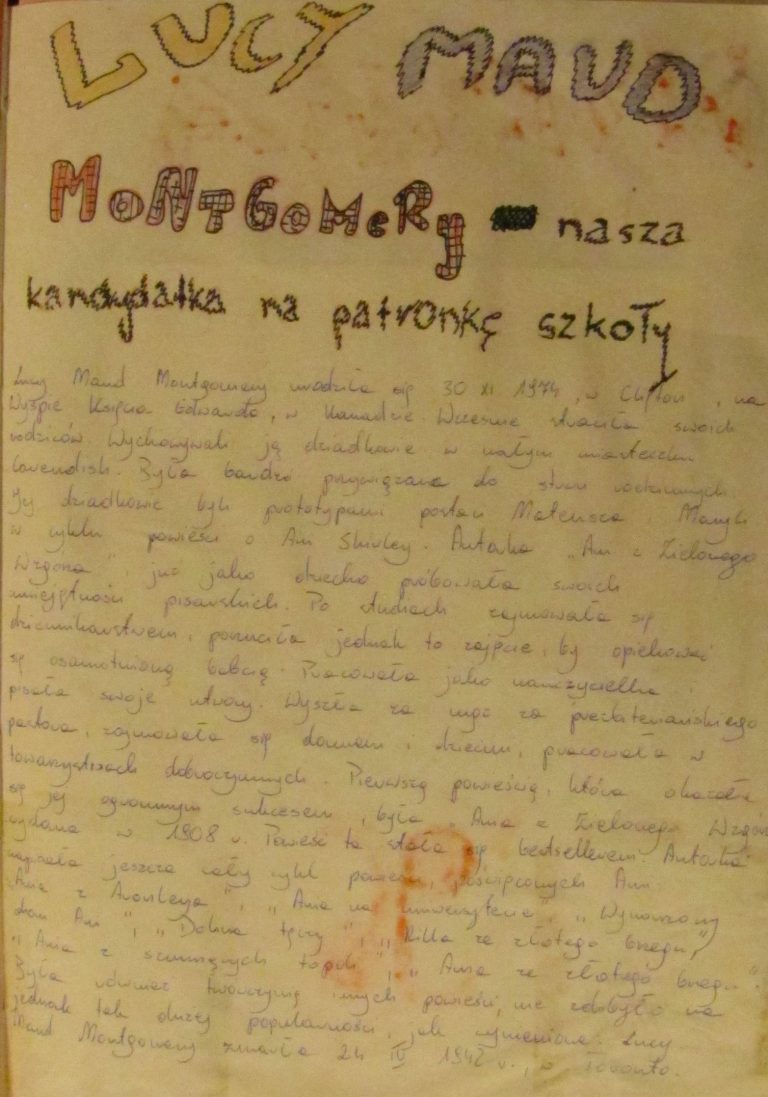 LUCY MAUD
MONTGOMERY - nasza
kandydatka na patronkę szkoły
Lucy Maud Montgomery urodziła się 30 XI 1974, w Clifton, na
Wyspie Księcia Edwarda, w Kanadzie. Wcześnie straciła swoich
rodziców. Wychowywali ją dziadkowie w małym miasteczku
Cavendish. Była bardzo przywiązana do stron rodzinnych.
Jej dziadkowie byli prototypami postaci Mateusza i Maryli
w cyklu powieści o Ani Shirley. Autorka „Ani z Zielonego
Wzgórza", już jako dziecko próbowała swoich
umiejętności pisarskich. Po studiach zajmowała się
dziennikarstwem, porzuciła jednak to zajęcie, by opiekować
się osamotnioną babcią. Pracowała jako nauczycielka i
pisała swoje utwory. Wyszła za mąż za prezbiteriańskiego
pastora, zajmowała się domem i dziećmi, pracowała w
towarzystwach dobroczynnych. Pierwszą powieścią, która okazała
się jej ogromnym sukcesem, była „Ania z Zielonego Wzgórza"
wydana w 1908 r. Powieść ta stała się bestsellerem. Autorka
napisała jeszcze cały cykl powieści, poświęconych Ani:
„Ania z Avonlea", „Ania na uniwersytecie", „Wymarzony
dom Ani", „Dolina tęczy", „Rilla ze złotego brzegu",
„Ania z szumiących topoli", „Ania ze złotego brzegu".
Była również twórczynią innych powieści, nie zdobyło to
jednak tak dużej popularności, jak wymienione. Lucy
Maud Montgomery zmarła 24 IV 1942 r., w Toronto.